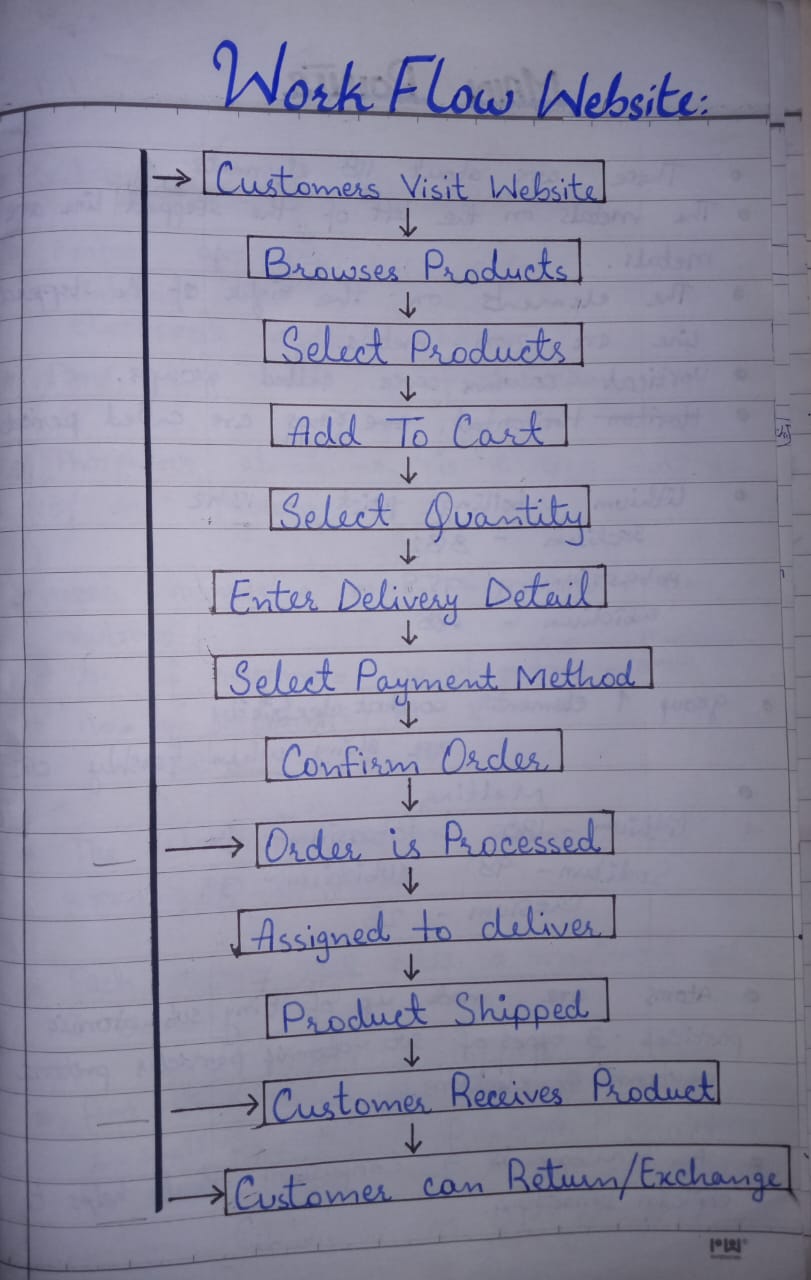 Work Flow Website:
Customers Visit Website
Browses Products
Select Products
Add To Cart
Select Quantity
Enter Delivery Detail
Select Payment Method
Confirm Order
Order is Processed
Assigned to deliver
Product Shipped
Customer Receives Product
Customer can Return/Exchange